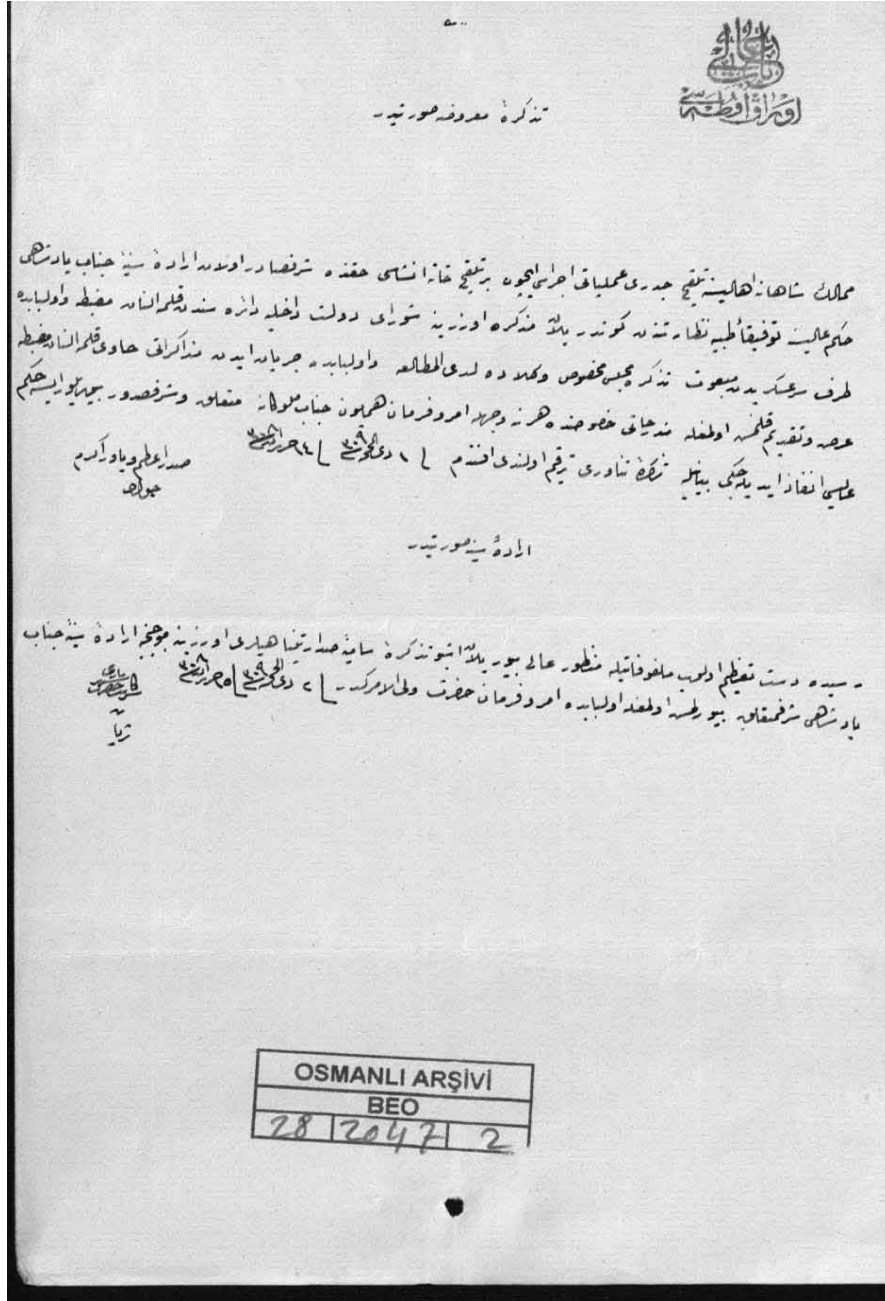 باب عالی
اوراق اوطه سی
تذکرهٔ معروضه صورتیدر
ممالك شاهانه اهالیسنه تلقیح جدری عملیاتی اجراسی ایچون بر تلقیح خانه انشاسی حقنده شرفصادر اولان ارادهٔ سنیهٔ جناب پادشاهی
حکم عالیسنه توفیقاً طبیه نظارتندن کوندریلان مذکره اوزرینه شورای دولت داخلیه دائره سندن قلمه النان مضبطه واولبابده
طرف سرعسکریدن مبعوث تذکره مجلس مخصوص وکلاده لدی المطالعه واولبابده جریان ایدن مذاکراتی حاوی قلمه النان مضبطه
عرض و تقدیم قلنمش اولمغله مندرجاتی خصوصنده هر نه وجهله امر وفرمان همایون جناب ملوکانه متعلق و شرفصدور بیوریلور ایسه حکم
عالیسی انفاذ ایدیله جکی بیانیله تذکرهٔ ثناوری ترقیم اولندی افندم ١ ذی الحجه ٣٠٩ ١٤ حزیران ٣٠٨
صدراعظم ویاور اکرم
جواد
ارادهٔ سنیه صورتیدر
رسیدهٔ دست تعظیم اولوب ملفوفاتیله منظور عالی بیوریلان اشبو تذکرهٔ سامیهٔ صدارتپناهیلری اوزرینه موجبنجه ارادهٔ سنیهٔ جناب
پادشاهی شرفمتعلق بیورلمش اولمغله اولبابده امر وفرمان حضرت ولی الامرکدر ٢ ذی الحجه ٣٠٩ ١٥ حزیران ٣٠٨
سرکاتب حضرت شهریاری
ثریا
OSMANLI ARŞİVİ
BEO
28 2047 2